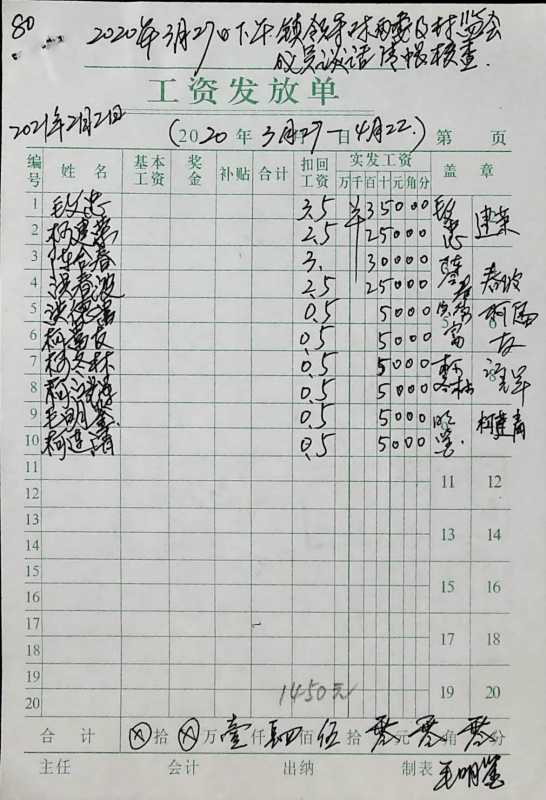 80
2020年3月27日下午镇领导对两委及村监会
成员谈话情报核查.
工资发放单
2021年2月2日
(2020年3月27日—4月22.) 第 页
编号 姓 名 基本工资 奖金 补贴 合计 扣回工资 实发工资 盖 章
万 千 百 十 元 角 分
1 3.5 35000
2 柯建荣 2.5 25000 建荣
3 3. 30000
4 洪春波 2.5 25000 春波
5 洪德富 0.5 5000
6 柯富友 0.5 5000 柯富友
7 柯冬林 0.5 5000 冬林
8 0.5 5000
9 毛明鉴 0.5 5000 明鉴
10 柯建清 0.5 5000 柯建清
11 11 12
12
13 13 14
14
15 15 16
16
17 17 18
18
19 19 20
20 1450元
合 计 ⊗拾⊗万壹仟肆佰伍拾零元零角零分
主任 会计 出纳 制表 毛明鉴